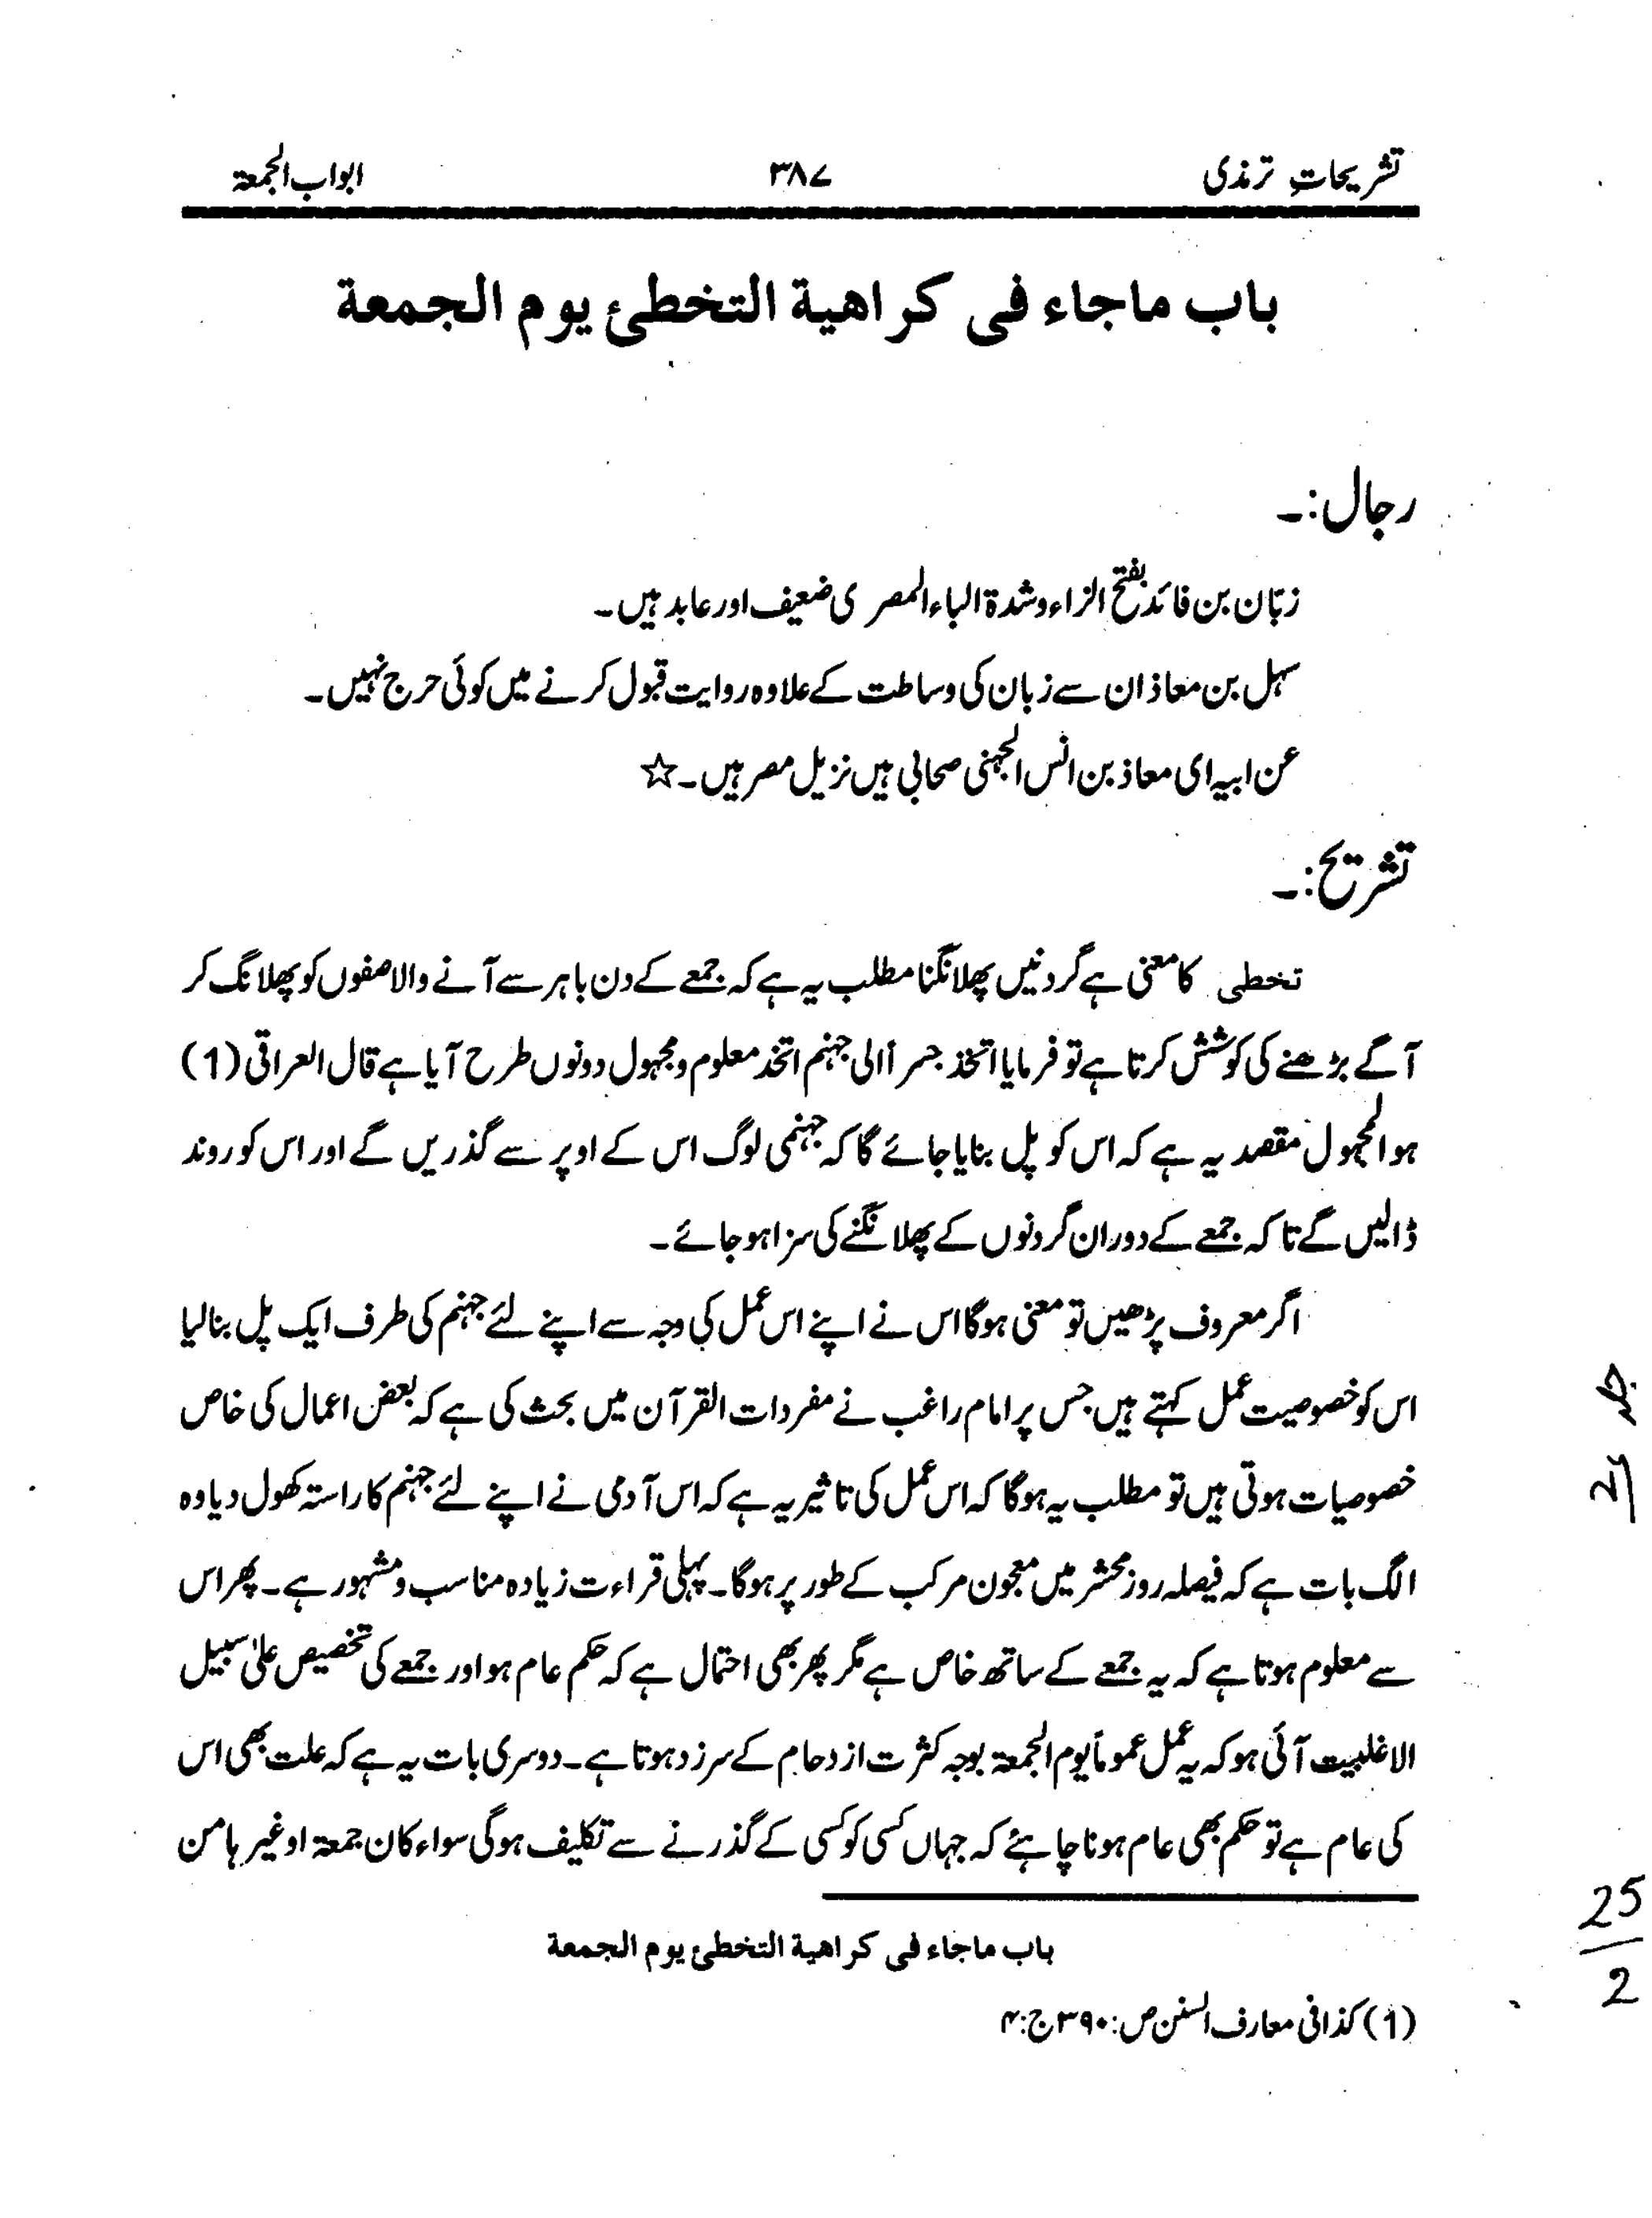 تشریحاتِ ترمذی ۳۸۷ ابواب الجمعة
باب ماجاء فی کراهیة التخطئ یوم الجمعة
رجال:۔
زبّان بن فائد بفتح الزاء وشدة الباء المصری ضعیف اور عابد ہیں۔
سہل بن معاذ ان سے زبان کی وساطت کے علاوہ روایت قبول کرنے میں کوئی حرج نہیں۔
عن ابیہ ای معاذ بن انس الجہنی صحابی ہیں نزیل مصر ہیں۔☆
تشریح:۔
تخطی کا معنی ہے گردنیں پھلانگنا مطلب یہ ہے کہ جمعے کے دن باہر سے آنے والا صفوں کو پھلانگ کر
آگے بڑھنے کی کوشش کرتا ہے تو فرمایا اتخذ جسراً الی جہنم اتخذ معلوم و مجہول دونوں طرح آیا ہے قال العراقی (1)
ہوالمجہول مقصد یہ ہے کہ اس کو پل بنایا جائے گا کہ جہنمی لوگ اس کے اوپر سے گذریں گے اور اس کو روند
ڈالیں گے تاکہ جمعے کے دوران گردنوں کے پھلانگنے کی سزا ہو جائے۔
اگر معروف پڑھیں تو معنی ہوگا اس نے اپنے اس عمل کی وجہ سے اپنے لئے جہنم کی طرف ایک پل بنالیا
اس کو خصوصیت عمل کہتے ہیں جس پر امام راغب نے مفردات القرآن میں بحث کی ہے کہ بعض اعمال کی خاص
خصوصیات ہوتی ہیں تو مطلب یہ ہوگا کہ اس عمل کی تاثیر یہ ہے کہ اس آدمی نے اپنے لئے جہنم کا راستہ کھول دیا وہ
الگ بات ہے کہ فیصلہ روز محشر میں معجون مرکب کے طور پر ہوگا۔ پہلی قراءت زیادہ مناسب و مشہور ہے۔ پھر اس
سے معلوم ہوتا ہے کہ یہ جمعے کے ساتھ خاص ہے مگر پھر بھی احتمال ہے کہ حکم عام ہو اور جمعے کی تخصیص علیٰ سبیل
الاغلبیت آئی ہو کہ یہ عمل عموماً یوم الجمعة بوجہ کثرت ازدحام کے سرزد ہوتا ہے۔ دوسری بات یہ ہے کہ علت بھی اس
کی عام ہے تو حکم بھی عام ہونا چاہئے کہ جہاں کسی کو کسی کے گذرنے سے تکلیف ہوگی سواء کان جمعة او غیرہا من
باب ماجاء فی کراهیة التخطئ یوم الجمعة
(1) کذا فی معارف السنن ص:۳۹۰ ج:۴
25
2